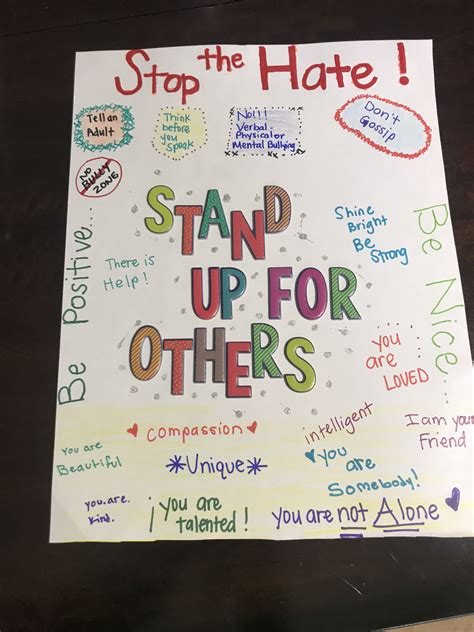 Stop the Hate!
Tell an
Adult
Think
before
you
Speak
No!!!
Verbal
Physical or
Mental Bullying
Don't
Gossip
NO
BULLY
ZONE
Be Positive...
STAND
UP FOR
OTHERS
There is
Help!
Shine
Bright
Be
Strong
Be Nice...
you
are
LOVED
compassion
intelligent
I am your
Friend
you are
Beautiful
*Unique*
you are
Somebody!
you.are.
kind.
¡you are
talented!
you are not Alone